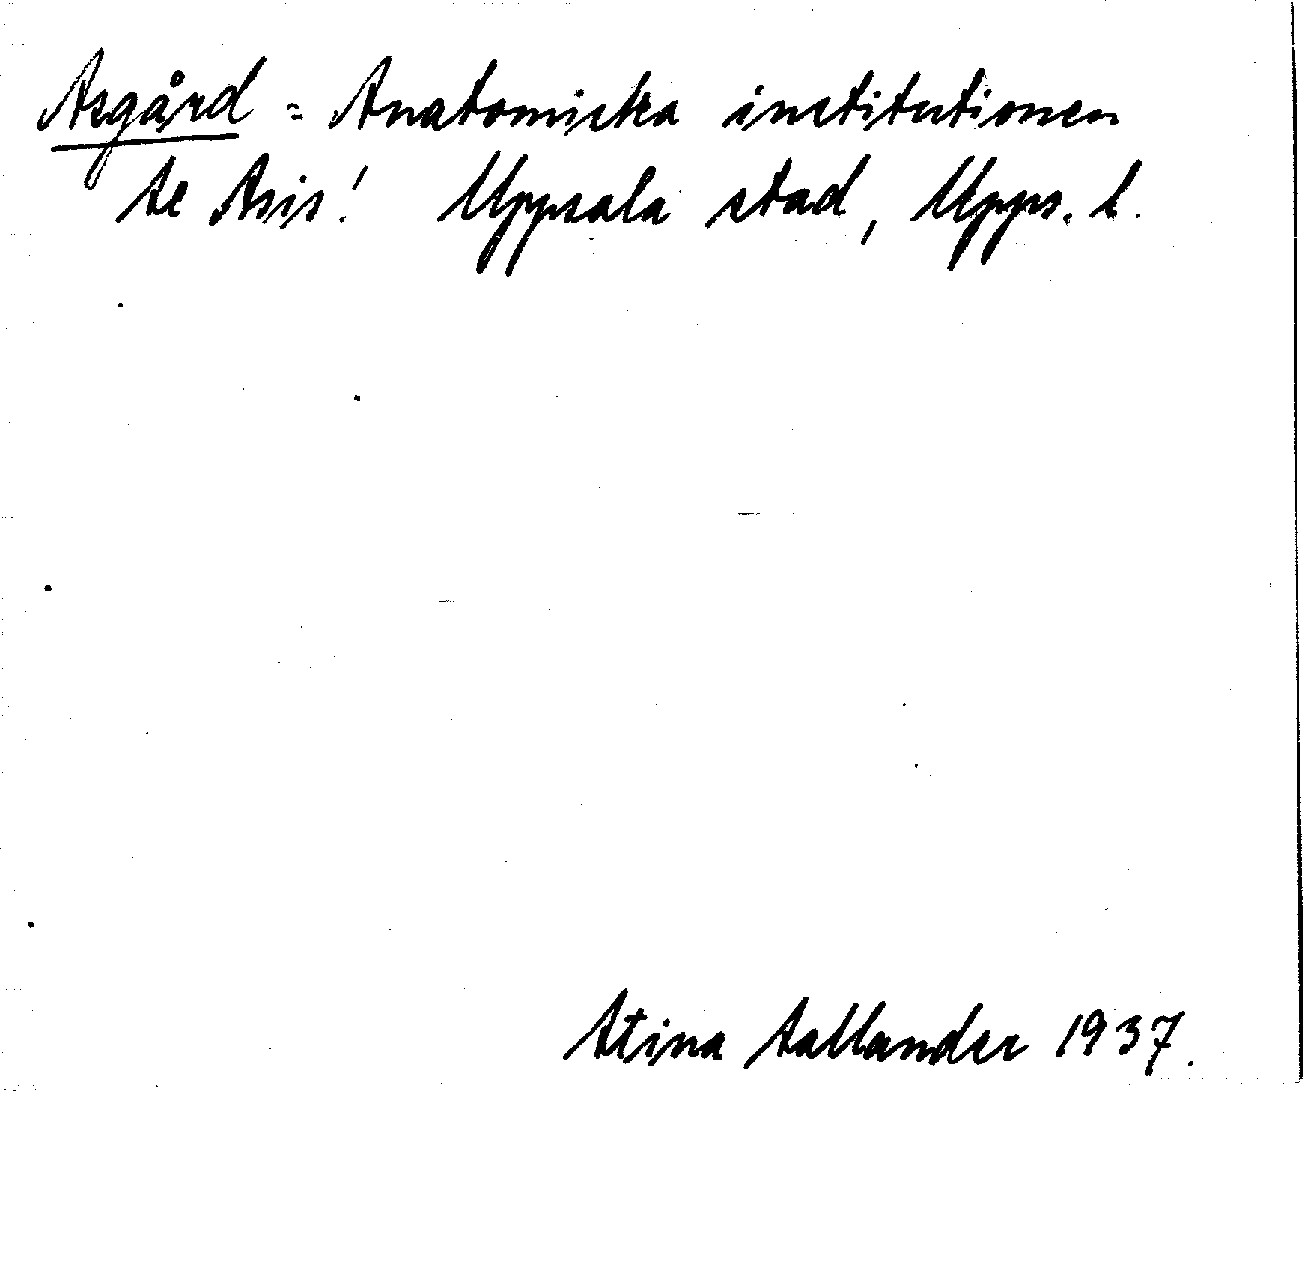 Asgård = Anatomiska institutionen
se Asis! Uppsala stad, Upps. l.
Stina Sallander 1937.